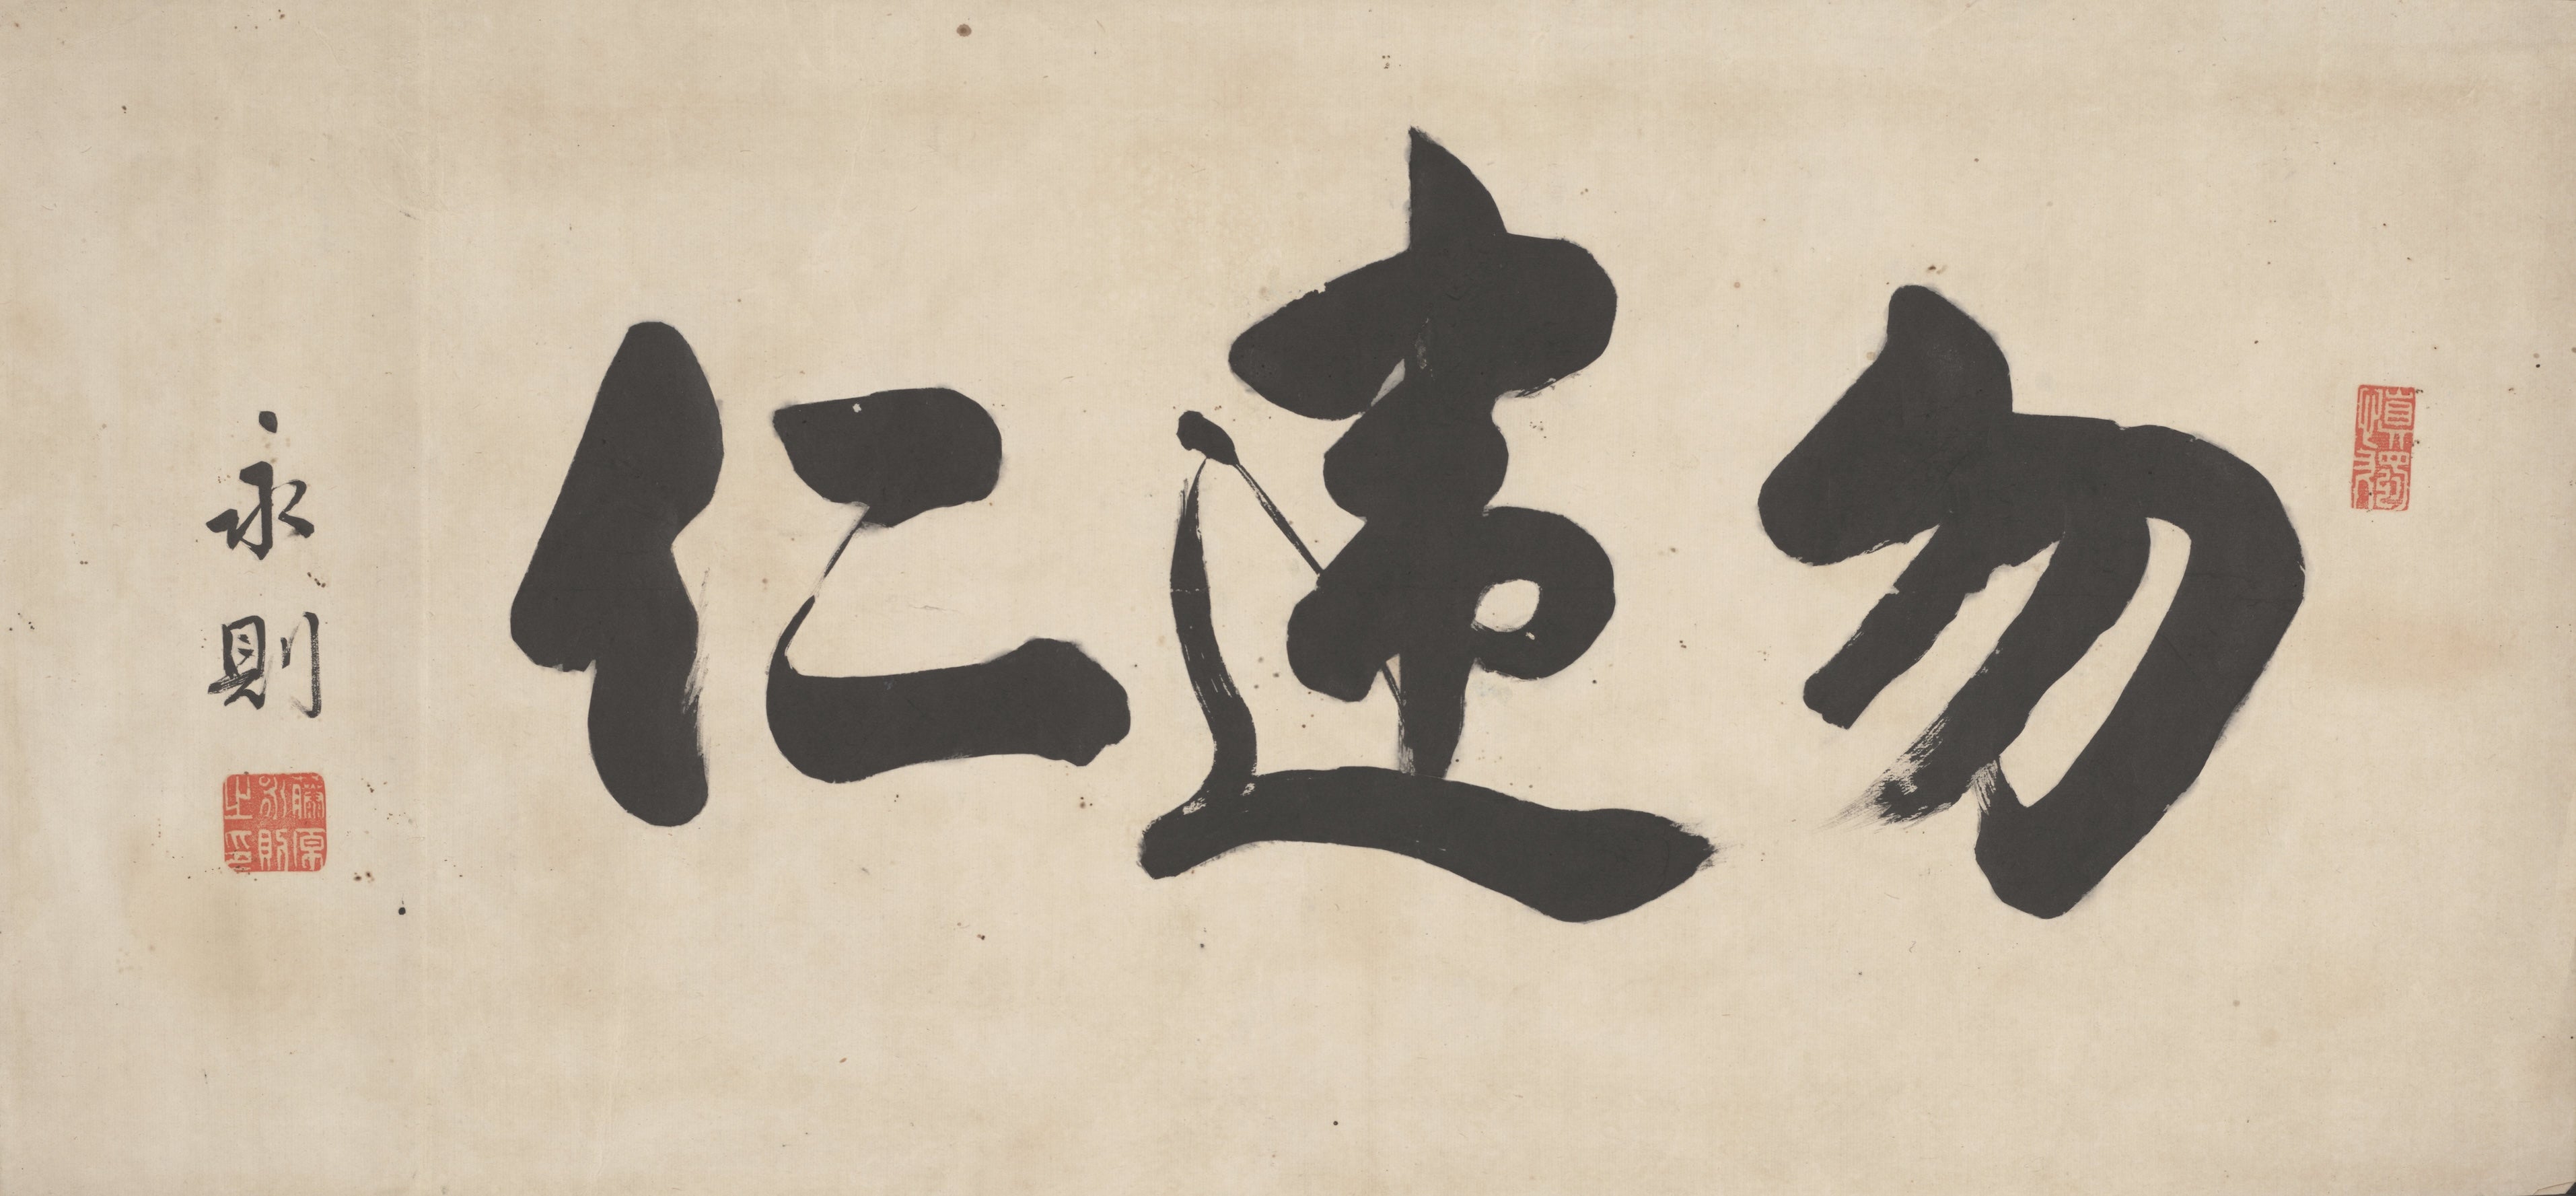 慎獨
勿違仁
永則
藤原永則之印